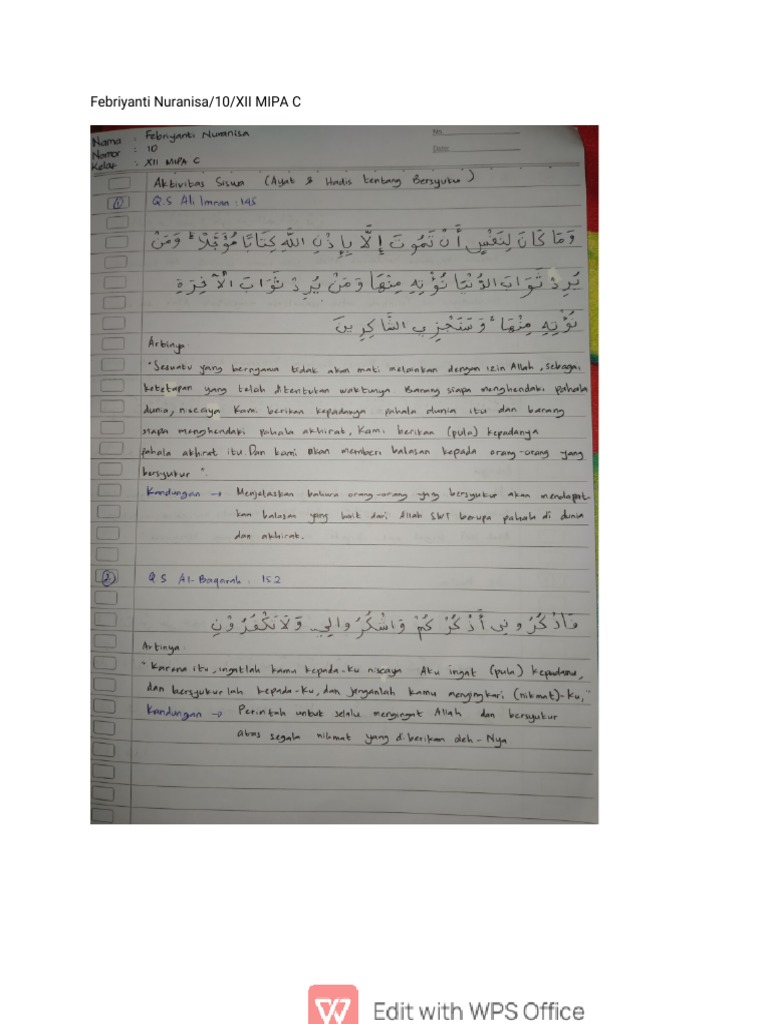 Febriyanti Nuranisa/10/XII MIPA C
Nama : Febriyanti Nuranisa
No.
Nomor : 10
Date:
Kelas : XII MIPA C
Aktivitas Siswa (Ayat & Hadis tentang Bersyukur)
1 Q.S Ali Imran : 145
وَمَا كَانَ لِنَفْسٍ أَنْ تَمُوتَ إِلَّا بِإِذْنِ اللَّهِ كِتَابًا مُؤَجَّلًا ۗ وَمَنْ
يُرِدْ ثَوَابَ الدُّنْيَا نُؤْتِهِ مِنْهَا وَمَنْ يُرِدْ ثَوَابَ الْآخِرَةِ
نُؤْتِهِ مِنْهَا ۚ وَسَنَجْزِي الشَّاكِرِينَ
Artinya
"Sesuatu yang bernyawa tidak akan mati melainkan dengan izin Allah, sebagai
ketetapan yang telah ditentukan waktunya. Barang siapa menghendaki pahala
dunia, niscaya Kami berikan kepadanya pahala dunia itu dan barang
siapa menghendaki pahala akhirat, Kami berikan (pula) kepadanya
pahala akhirat itu Dan kami akan memberi balasan kepada orang-orang yang
bersyukur".
Kandungan → Menjelaskan bahwa orang-orang yang bersyukur akan mendapat
kan balasan yang baik dari Allah SWT berupa pahala di dunia
dan akhirat.
2 Q S Al-Baqarah : 152
فَاذْكُرُونِي أَذْكُرْكُمْ وَاشْكُرُوا لِي وَلَا تَكْفُرُوْنِ
Artinya
"Karena itu, ingatlah kamu kepada-Ku niscaya Aku ingat (pula) kepadamu,
dan bersyukur lah kepada-Ku, dan janganlah kamu mengingkari (nikmat)-Ku,"
Kandungan → Perintah untuk selalu mengingat Allah dan bersyukur
atas segala nikmat yang diberikan oleh-Nya
Edit with WPS Office